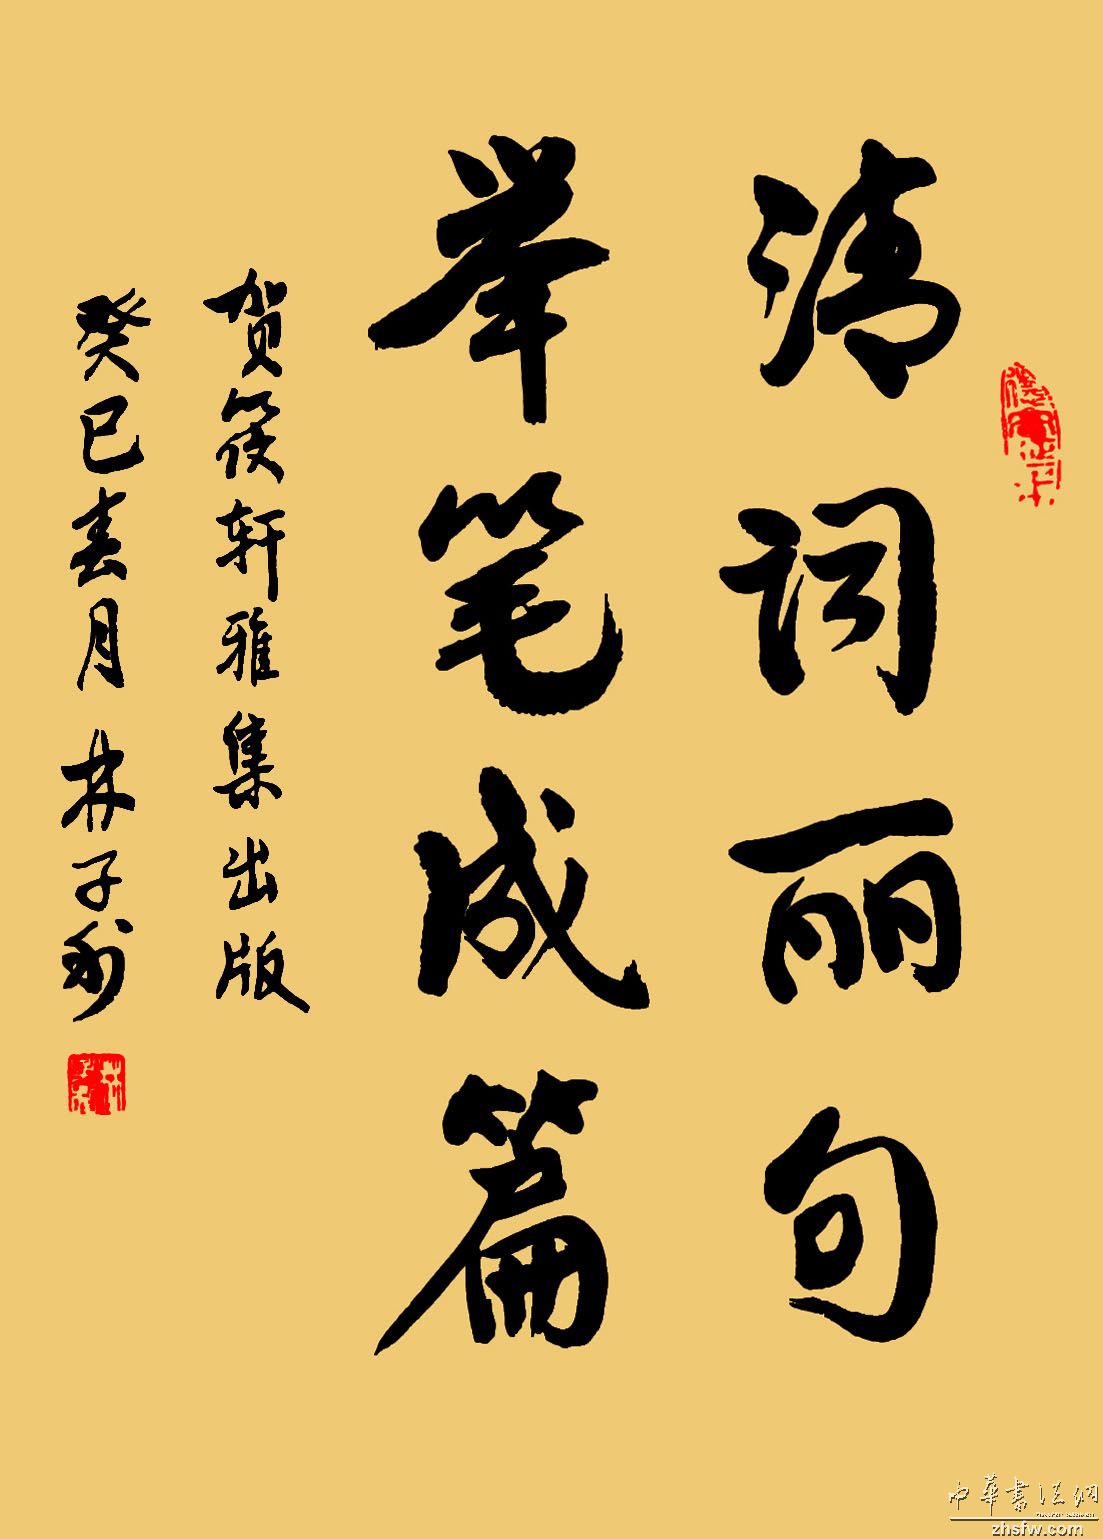 清词丽句
举笔成篇
贺筱轩雅集出版
癸巳春月 林子利
中华书法网
zhsfw.com